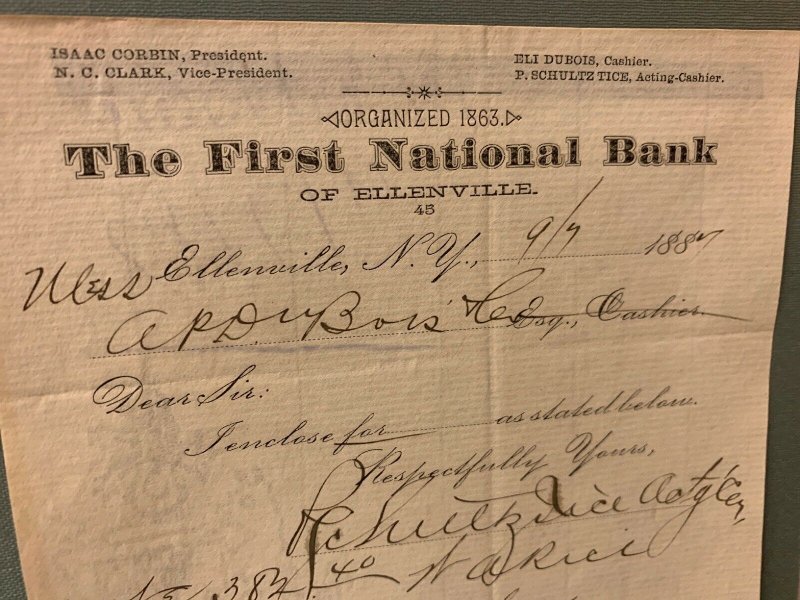 ISAAC CORBIN, President.
N. C. CLARK, Vice-President.
ELI DUBOIS, Cashier.
P. SCHULTZ TICE, Acting-Cashier.
ORGANIZED 1863.
The First National Bank
OF ELLENVILLE.
45
Ellenville, N. Y., 9/7 1887
Mess
A P DuBois Co Esq., Cashier.
Dear Sir:
I enclose for as stated below.
Respectfully Yours,
P Schultz Tice Actg Csr,
382.40